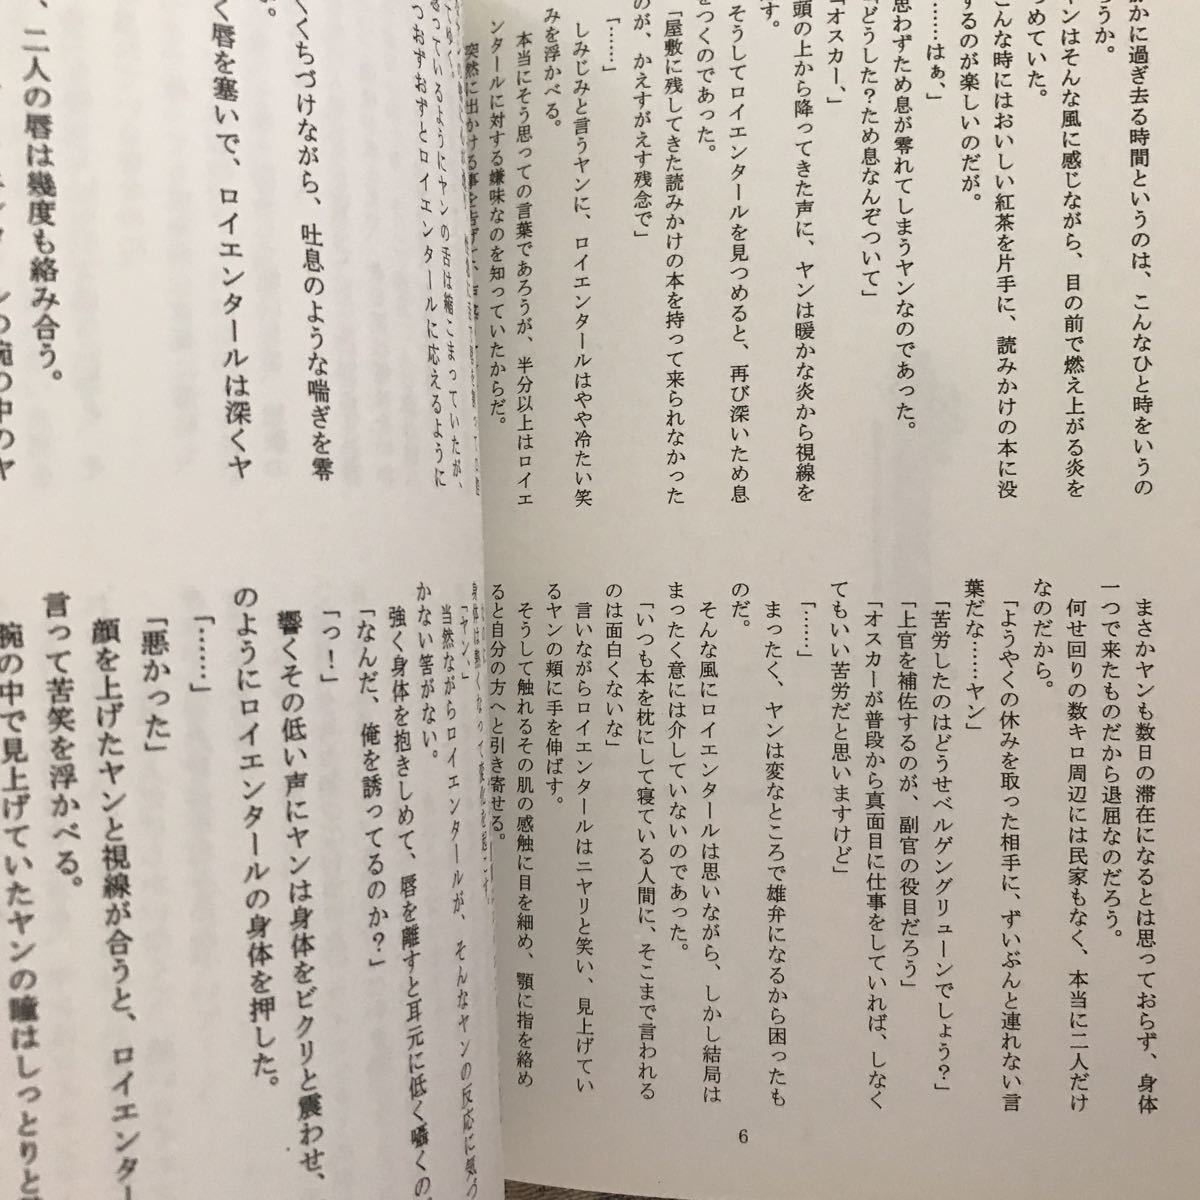 かに過ぎ去る時間というのは、こんなひと時をいうの
ろうか。
ヤンはそんな風に感じながら、目の前で燃え上がる炎を
つめていた。
こんな時にはおいしい紅茶を片手に、読みかけの本に没
するのが楽しいのだが。
「……はぁ、」
思わずため息が零れてしまうヤンなのであった。
「どうした？ため息なんぞついて」
「オスカー、」
頭の上から降ってきた声に、ヤンは暖かな炎から視線を
す。
そうしてロイエンタールを見つめると、再び深いため息
をつくのであった。
「屋敷に残してきた読みかけの本を持って来られなかった
のが、かえすがえす残念で」
「……」
しみじみと言うヤンに、ロイエンタールはやや冷たい笑
みを浮かべる。
本当にそう思っての言葉であろうが、半分以上はロイエ
ンタールに対する嫌味なのを知っていたからだ。
突然に出かける事を告げて、
まさかヤンも数日の滞在になるとは思っておらず、身体
一つで来たものだから退屈なのだろう。
何せ回りの数キロ周辺には民家もなく、本当に二人だけ
なのだから。
「ようやくの休みを取った相手に、ずいぶんと連れない言
葉だな……ヤン」
「苦労したのはどうせベルゲングリューンでしょう？」
「上官を補佐するのが、副官の役目だろう」
「オスカーが普段から真面目に仕事をしていれば、しなく
てもいい苦労だと思いますけど」
「……」
まったく、ヤンは変なところで雄弁になるから困ったも
のだ。
そんな風にロイエンタールは思いながら、しかし結局は
まったく意には介していないのであった。
「いつも本を枕にして寝ている人間に、そこまで言われる
のは面白くないな」
言いながらロイエンタールはニヤリと笑い、見上げてい
るヤンの頬に手を伸ばす。
そうして触れるその肌の感触に目を細め、顎に指を絡め
ると自分の方へと引き寄せる。
6
思っているようにヤンの舌は縮こまっていたが、
つおずおずとロイエンタールに応えるように
くちづけながら、吐息のような喘ぎを零
く唇を塞いで、ロイエンタールは深くヤ
、二人の唇は幾度も絡み合う。
ルの腕の中のヤ
「ヤン、」
当然ながらロイエンタールが、そんなヤンの反応に気づ
かない筈がない。
強く身体を抱きしめて、唇を離すと耳元に低く囁くの
「なんだ、俺を誘ってるのか？」
「っ！」
響くその低い声にヤンは身体をビクリと震わせ、
のようにロイエンタールの身体を押した。
「……」
「悪かった」
顔を上げたヤンと視線が合うと、ロイエンター
言って苦笑を浮かべる。
腕の中で見上げていたヤンの瞳はしっとりと